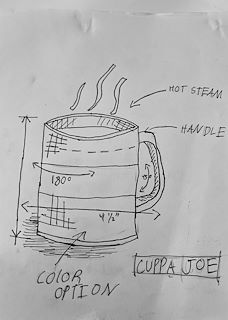 HOT STEAM
HANDLE
180°
4 ½"
COLOR
OPTION
CUPPA JOE